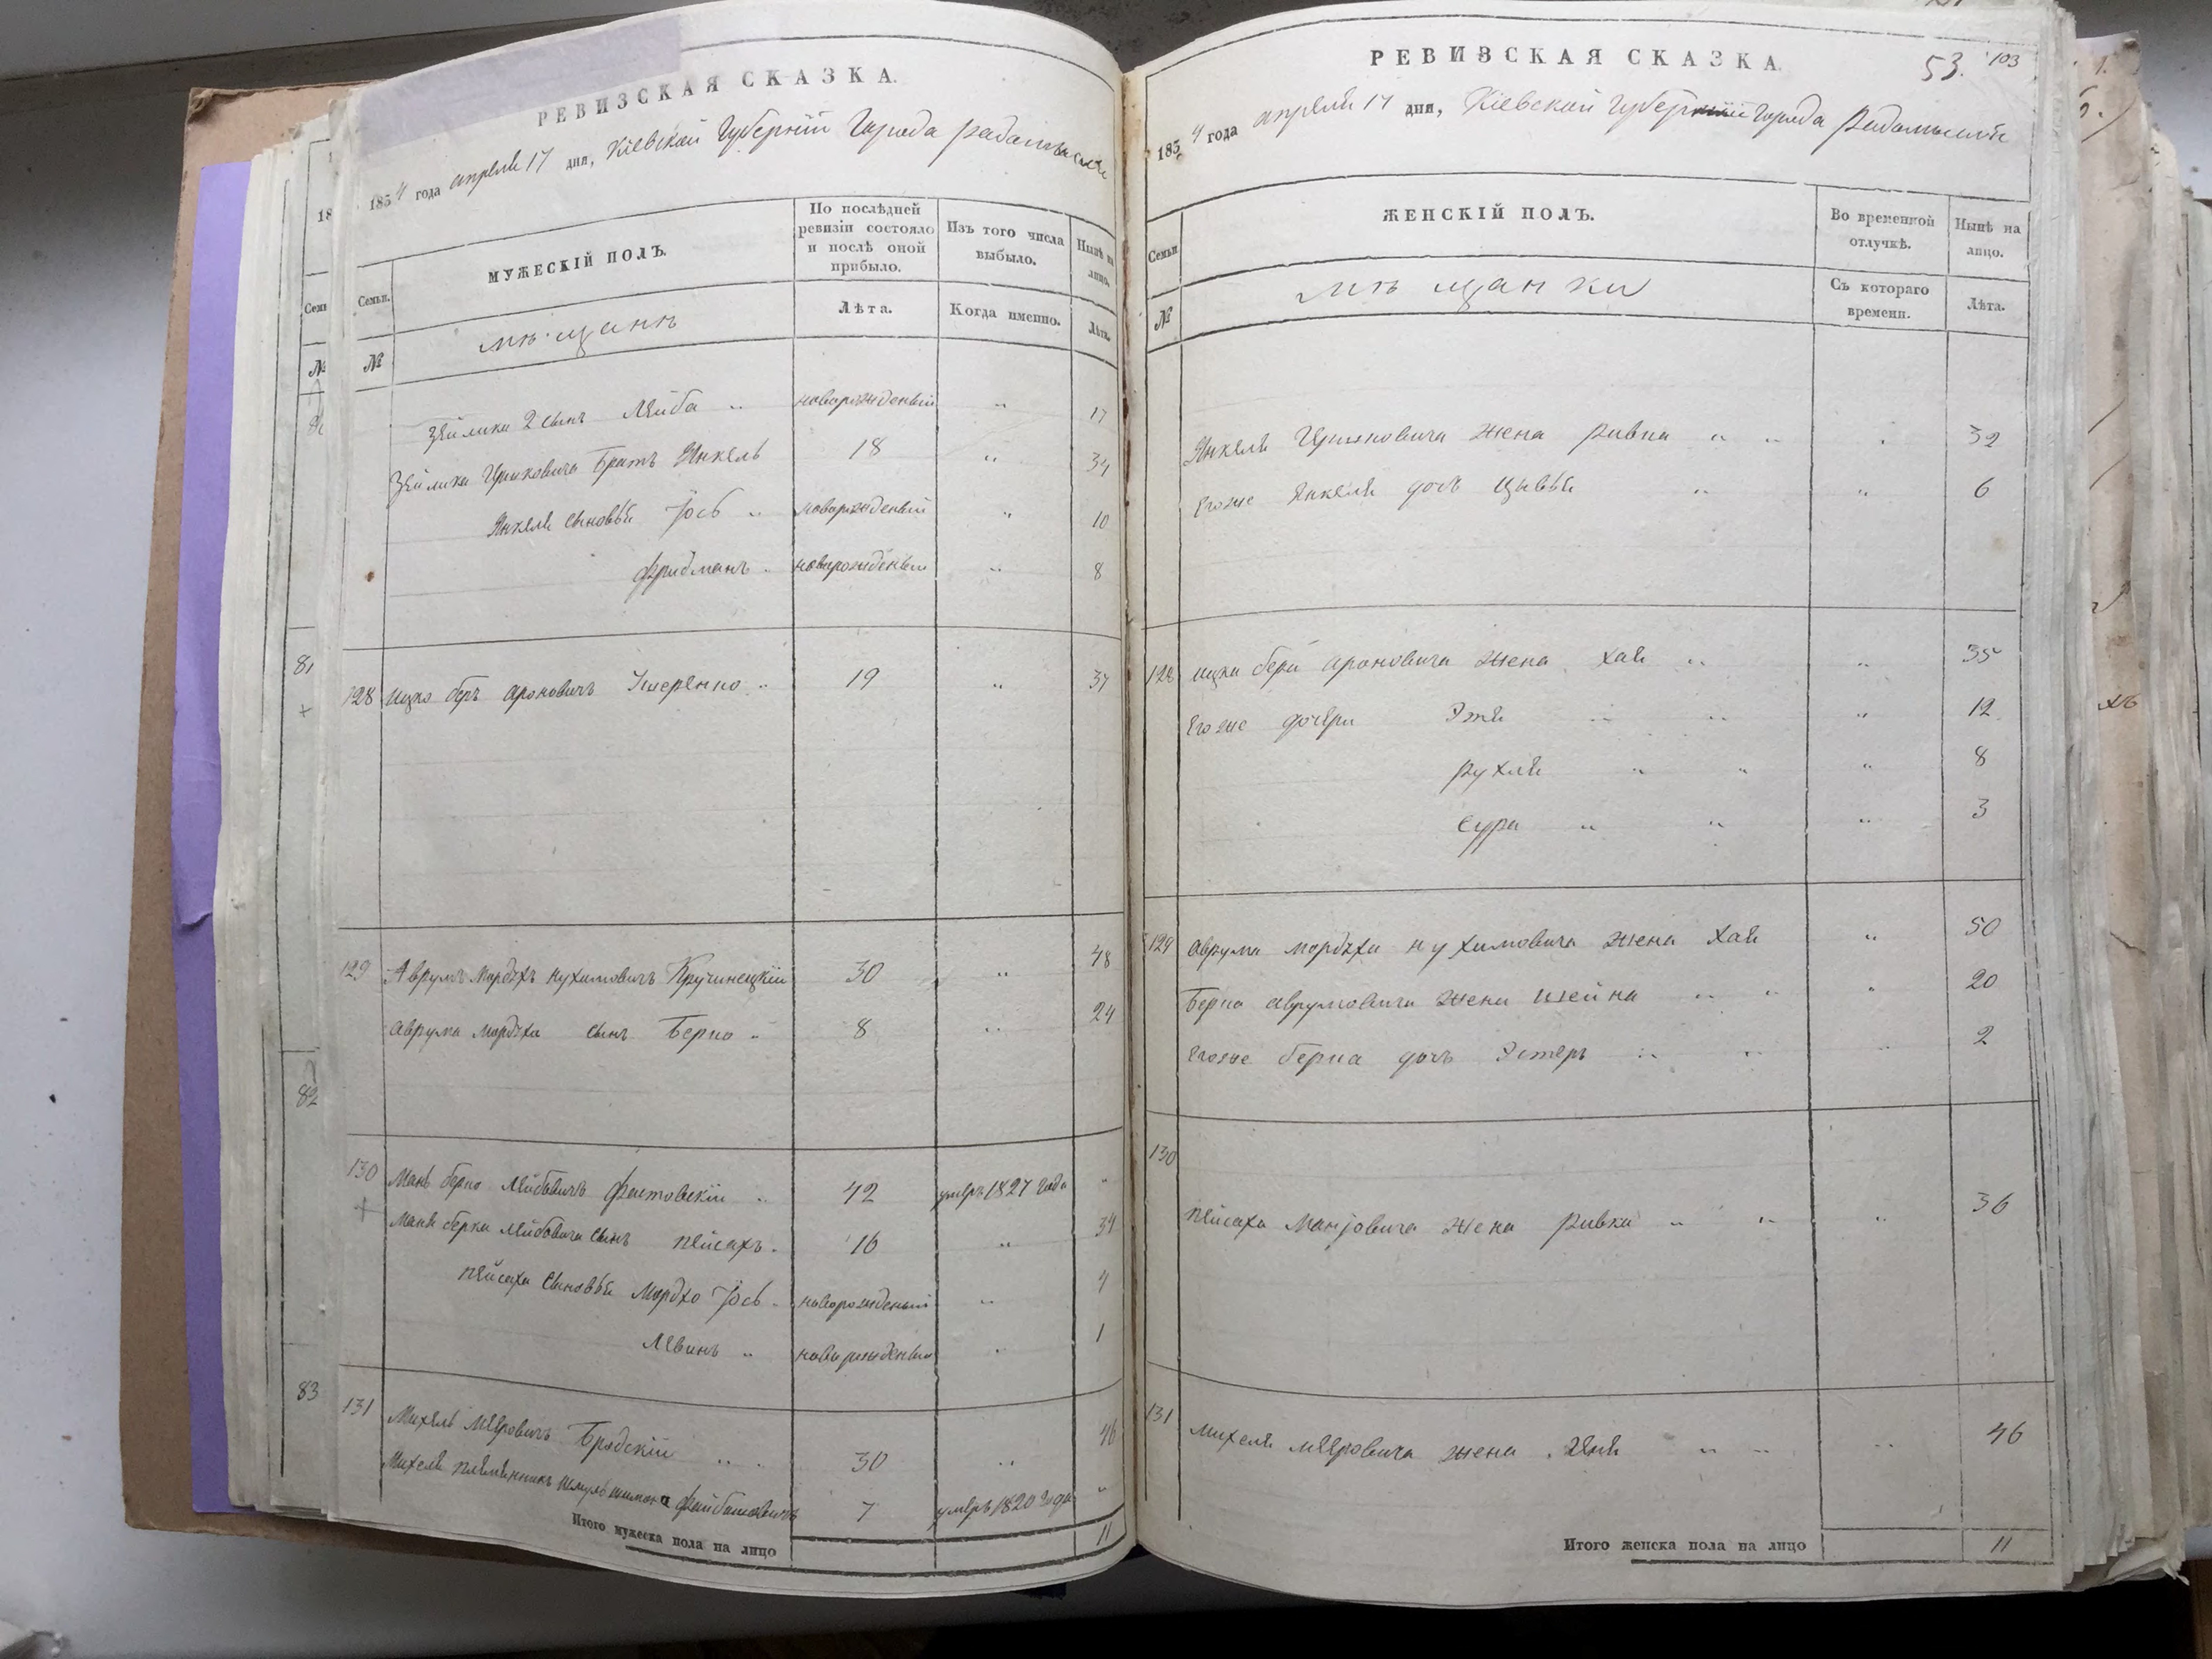 РЕВИЗСКАЯ СКАЗКА.
1854 года апреля 17 дня, Кіевской Губерніи Города Радомысля
Семьи.
МУЖЕСКІЙ ПОЛЪ.
По послѣдней ревизіи состояло и послѣ оной прибыло.
Изъ того числа выбыло.
Нынѣ на лицо.
№
мѣщанъ
Лѣта.
Когда именно.
Лѣта.
Зейлика 2 сынъ Лейба " новорожденый " 17
Зейлика Ициковича Братъ Янкель 18 " 34
Янкеля сыновья Іось " новорожденый " 10
Фридманъ " новорожденый " 8
128 Ицко беръ ароновичъ " 19 " 37
129 Аврумъ Мордхъ нухимовичъ Кручинецкій 30 " 48
Аврума Мордха сынъ Берко " 8 " 24
130 Мань берко Лейбовичъ Фастовскій " 42 умеръ 1827 года "
Маня берки Лейбовича сынъ Пейсахъ " 16 " 34
Пейсаха сыновья Мордхо Іось " новорожденый " 4
Левинъ " новорожденый " 1
131 Михель Меровичъ Бродскій " " 30 " 46
Михеля племянникъ Шмуль Файбишовичъ 7 умеръ 1820 года "
Итого мужеска пола на лицо 11
РЕВИЗСКАЯ СКАЗКА.
53. 103
1854 года апреля 17 дня, Кіевской Губерніи Города Радомысля
Семьи
ЖЕНСКІЙ ПОЛЪ.
Во временной отлучкѣ.
Нынѣ на лицо.
№
мѣщанки
Съ котораго времени.
Лѣта.
Янкеля Ициковича жена Ривка " " " 32
Егоже Янкеля дочь Цывья " " 6
128 Ицка бера ароновича жена Хая " " 35
Егоже дочери Этя " " " 12
Рухля " " " 8
Сура " " " 3
129 Аврума мордха нухимовича жена Хая " 50
Берка аврумовича жена Шейна " " " 20
Егоже берка дочь Эстеръ " " " 2
130
Пейсаха Маніовича жена Ривка " " " 36
131 Михеля Меровича жена Хая " " " 46
Итого женска пола на лицо 11
81
82
83